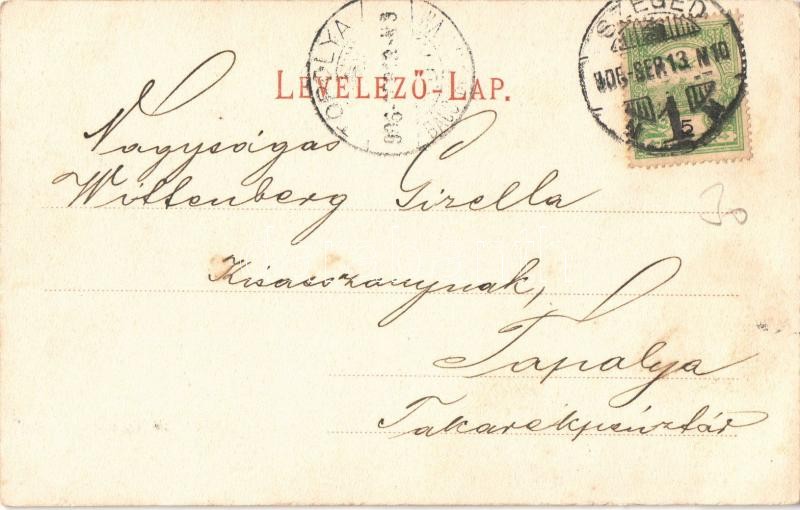 SZEGED
906-SER 13 N 10
5
LEVELEZŐ-LAP.
Nagyságos
Wittenberg Gizella
Kisasszonynak,
Tapolya
Takarékpénztár
30